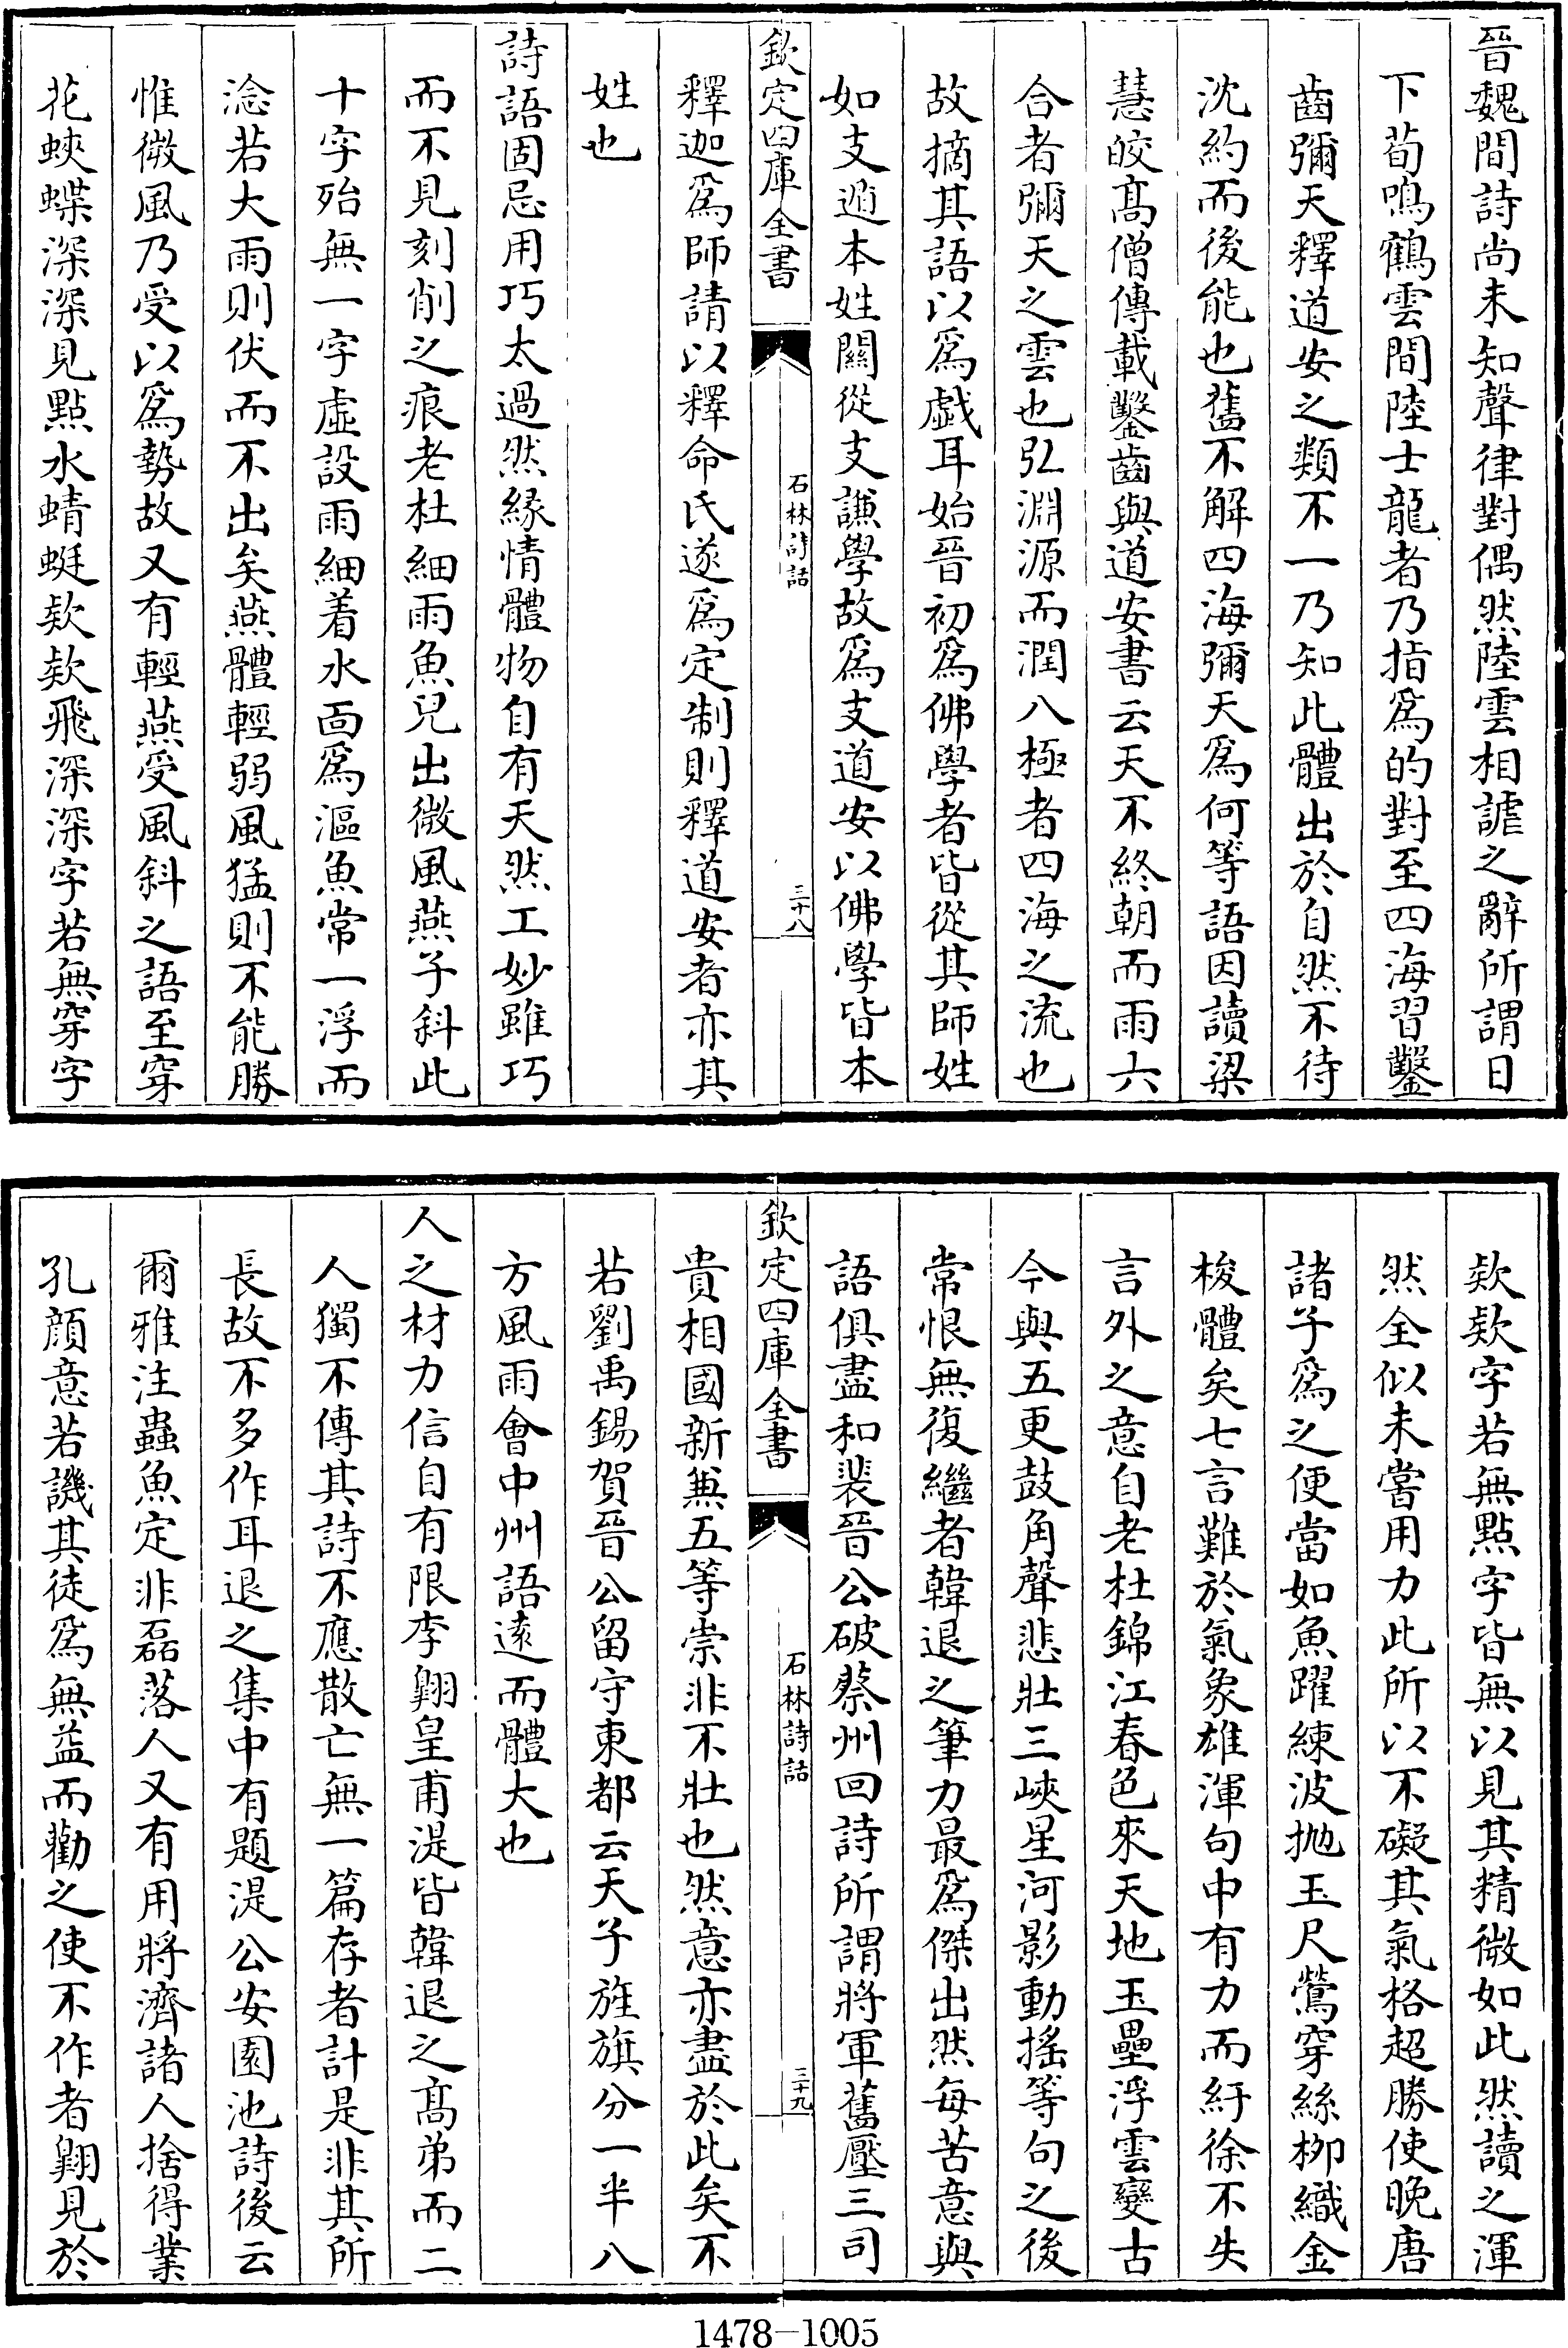 晉魏間詩尚未知聲律對偶然陸雲相謔之辭所謂日
下荀鳴鶴雲間陸士龍者乃指為的對至四海習鑿
齒彌天釋道安之類不一乃知此體出於自然不待
沈約而後能也舊不解四海彌天為何等語因讀梁
慧皎高僧傳載鑿齒與道安書云天不終朝而雨六
合者彌天之雲也弘淵源而潤八極者四海之流也
故摘其語以為戲耳始晉初為佛學者皆從其師姓
如支遁本姓關從支謙學故為支道安以佛學皆本
欽定四庫全書
石林詩話
三十八
釋迦為師請以釋命氏遂為定制則釋道安者亦其
姓也
詩語固忌用巧太過然緣情體物自有天然工妙雖巧
而不見刻削之痕老杜細雨魚兒出微風燕子斜此
十字殆無一字虛設雨細着水面為漚魚常一浮而
淰若大雨則伏而不出矣燕體輕弱風猛則不能勝
惟微風乃受以為勢故又有輕燕受風斜之語至穿
花蛺蝶深深見點水蜻蜓欵欵飛深深字若無穿字
欵欵字若無點字皆無以見其精微如此然讀之渾
然全似未嘗用力此所以不礙其氣格超勝使晚唐
諸子為之便當如魚躍練波拋玉尺鶯穿絲柳織金
梭體矣七言難於氣象雄渾句中有力而紆徐不失
言外之意自老杜錦江春色來天地玉壘浮雲變古
今與五更鼓角聲悲壯三峽星河影動搖等句之後
常恨無復繼者韓退之筆力最為傑出然每苦意與
語俱盡和裴晉公破蔡州回詩所謂將軍舊壓三司
欽定四庫全書
石林詩話
三十九
貴相國新兼五等崇非不壯也然意亦盡於此矣不
若劉禹錫賀晉公留守東都云天子旌旗分一半八
方風雨會中州語遠而體大也
人之材力信自有限李翺皇甫湜皆韓退之高弟而二
人獨不傳其詩不應散亡無一篇存者計是非其所
長故不多作耳退之集中有題湜公安園池詩後云
爾雅注蟲魚定非磊落人又有用將濟諸人捨得業
孔顔意若譏其徒為無益而勸之使不作者翺見於
1478-1005